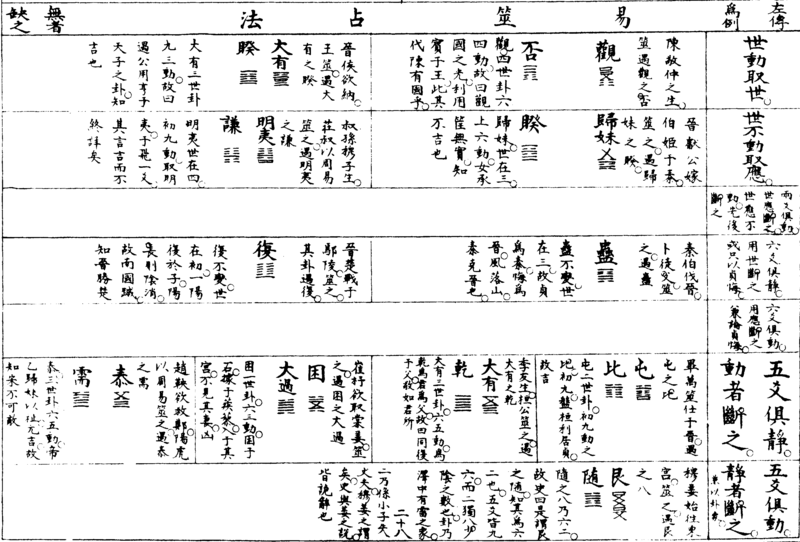 易筮占法
左傳
為例
無者
缺之
世動取世
陳敬仲之生
筮遇觀之否
觀
否
觀四世卦六
四動故曰觀
國之光利用
賓于王此其
代陳有國乎
晉侯欲納
王筮遇大
有之睽
大有
睽
大有三世卦
九三動故曰
遇公用享于
天子之卦知
吉也
世不動取應
晉獻公嫁
伯姬于秦
筮之遇歸
妹之睽
歸妹
睽
歸妹世在三
上六動女承
筐無實知
不吉也
叔孫穆子生
莊叔以周易
筮之遇明夷
之謙
明夷
謙
明夷世在四
初九動取明
夷于飛一爻
其言吉而不
終詳矣
兩爻俱動
世應斷之
世應不
動先後
斷之
六爻俱靜
用世斷之
或只以貞悔
秦伯伐晉
卜徒父筮
之遇蠱
蠱
蠱不變世
在三故貞
為秦悔為
晉風落山
秦克晉也
晉楚戰于
鄢陵筮之
其卦遇復
復
復不變世
在初一陽
復於子陽
長則陰消
故南國蹙
知晉勝楚
六爻俱動
用應斷之
兼論貞悔
五爻俱靜
動者斷之
畢萬筮仕于晉遇
屯之比
屯
比
屯一世卦初九動之
比初九盤桓利居貞
故吉
季友生桓公筮之遇
大有之乾
大有
乾
大有三世卦六五動為
乾為君為父故曰同復
于父敬如君所
崔杼欲取棠姜筮
之遇困之大過
困
大過
困一世卦六三動困于
石據于蒺藜入于其
宮不見其妻凶
趙鞅欲救鄭陽虎
以周易筮之遇泰
之需
泰
需
泰三世卦六五動帝
乙歸妹以祉元吉故
知宋不可敵
五爻俱動
靜者斷之
單以卦言
穆姜始往東
宮筮之遇艮
之八
艮
隨
隨之八乃六二
故史曰是謂艮
之隨知其為六
二也五爻皆九
六而二獨八少
陰之數也卦乃
澤中有雷之象
二十八
二乃係小子失
丈夫穆姜之謂
矣史與姜之說
皆詭辭也